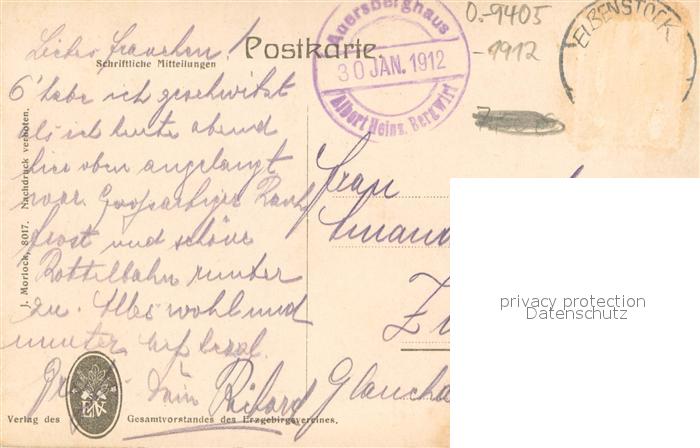 Auersberghaus
30 JAN. 1912
Albert Heinz, Bergwirt
O.-9405
-1912
EIBENSTOCK
Postkarte.
Schriftliche Mitteilungen
Liebes Frauchen!
habe ich geschwitzt
als ich heute abend
hier oben angelangt
war. Großartiger Rauh
frost und schöne
Rottelbahn runter
zu. Alles wohl und
munter
Dein Richard
Frau
Glaucha
J. Morlock, 8017. Nachdruck verboten.
Verlag des Gesamtvorstandes des Erzgebirgsvereines.
privacy protection
Datenschutz